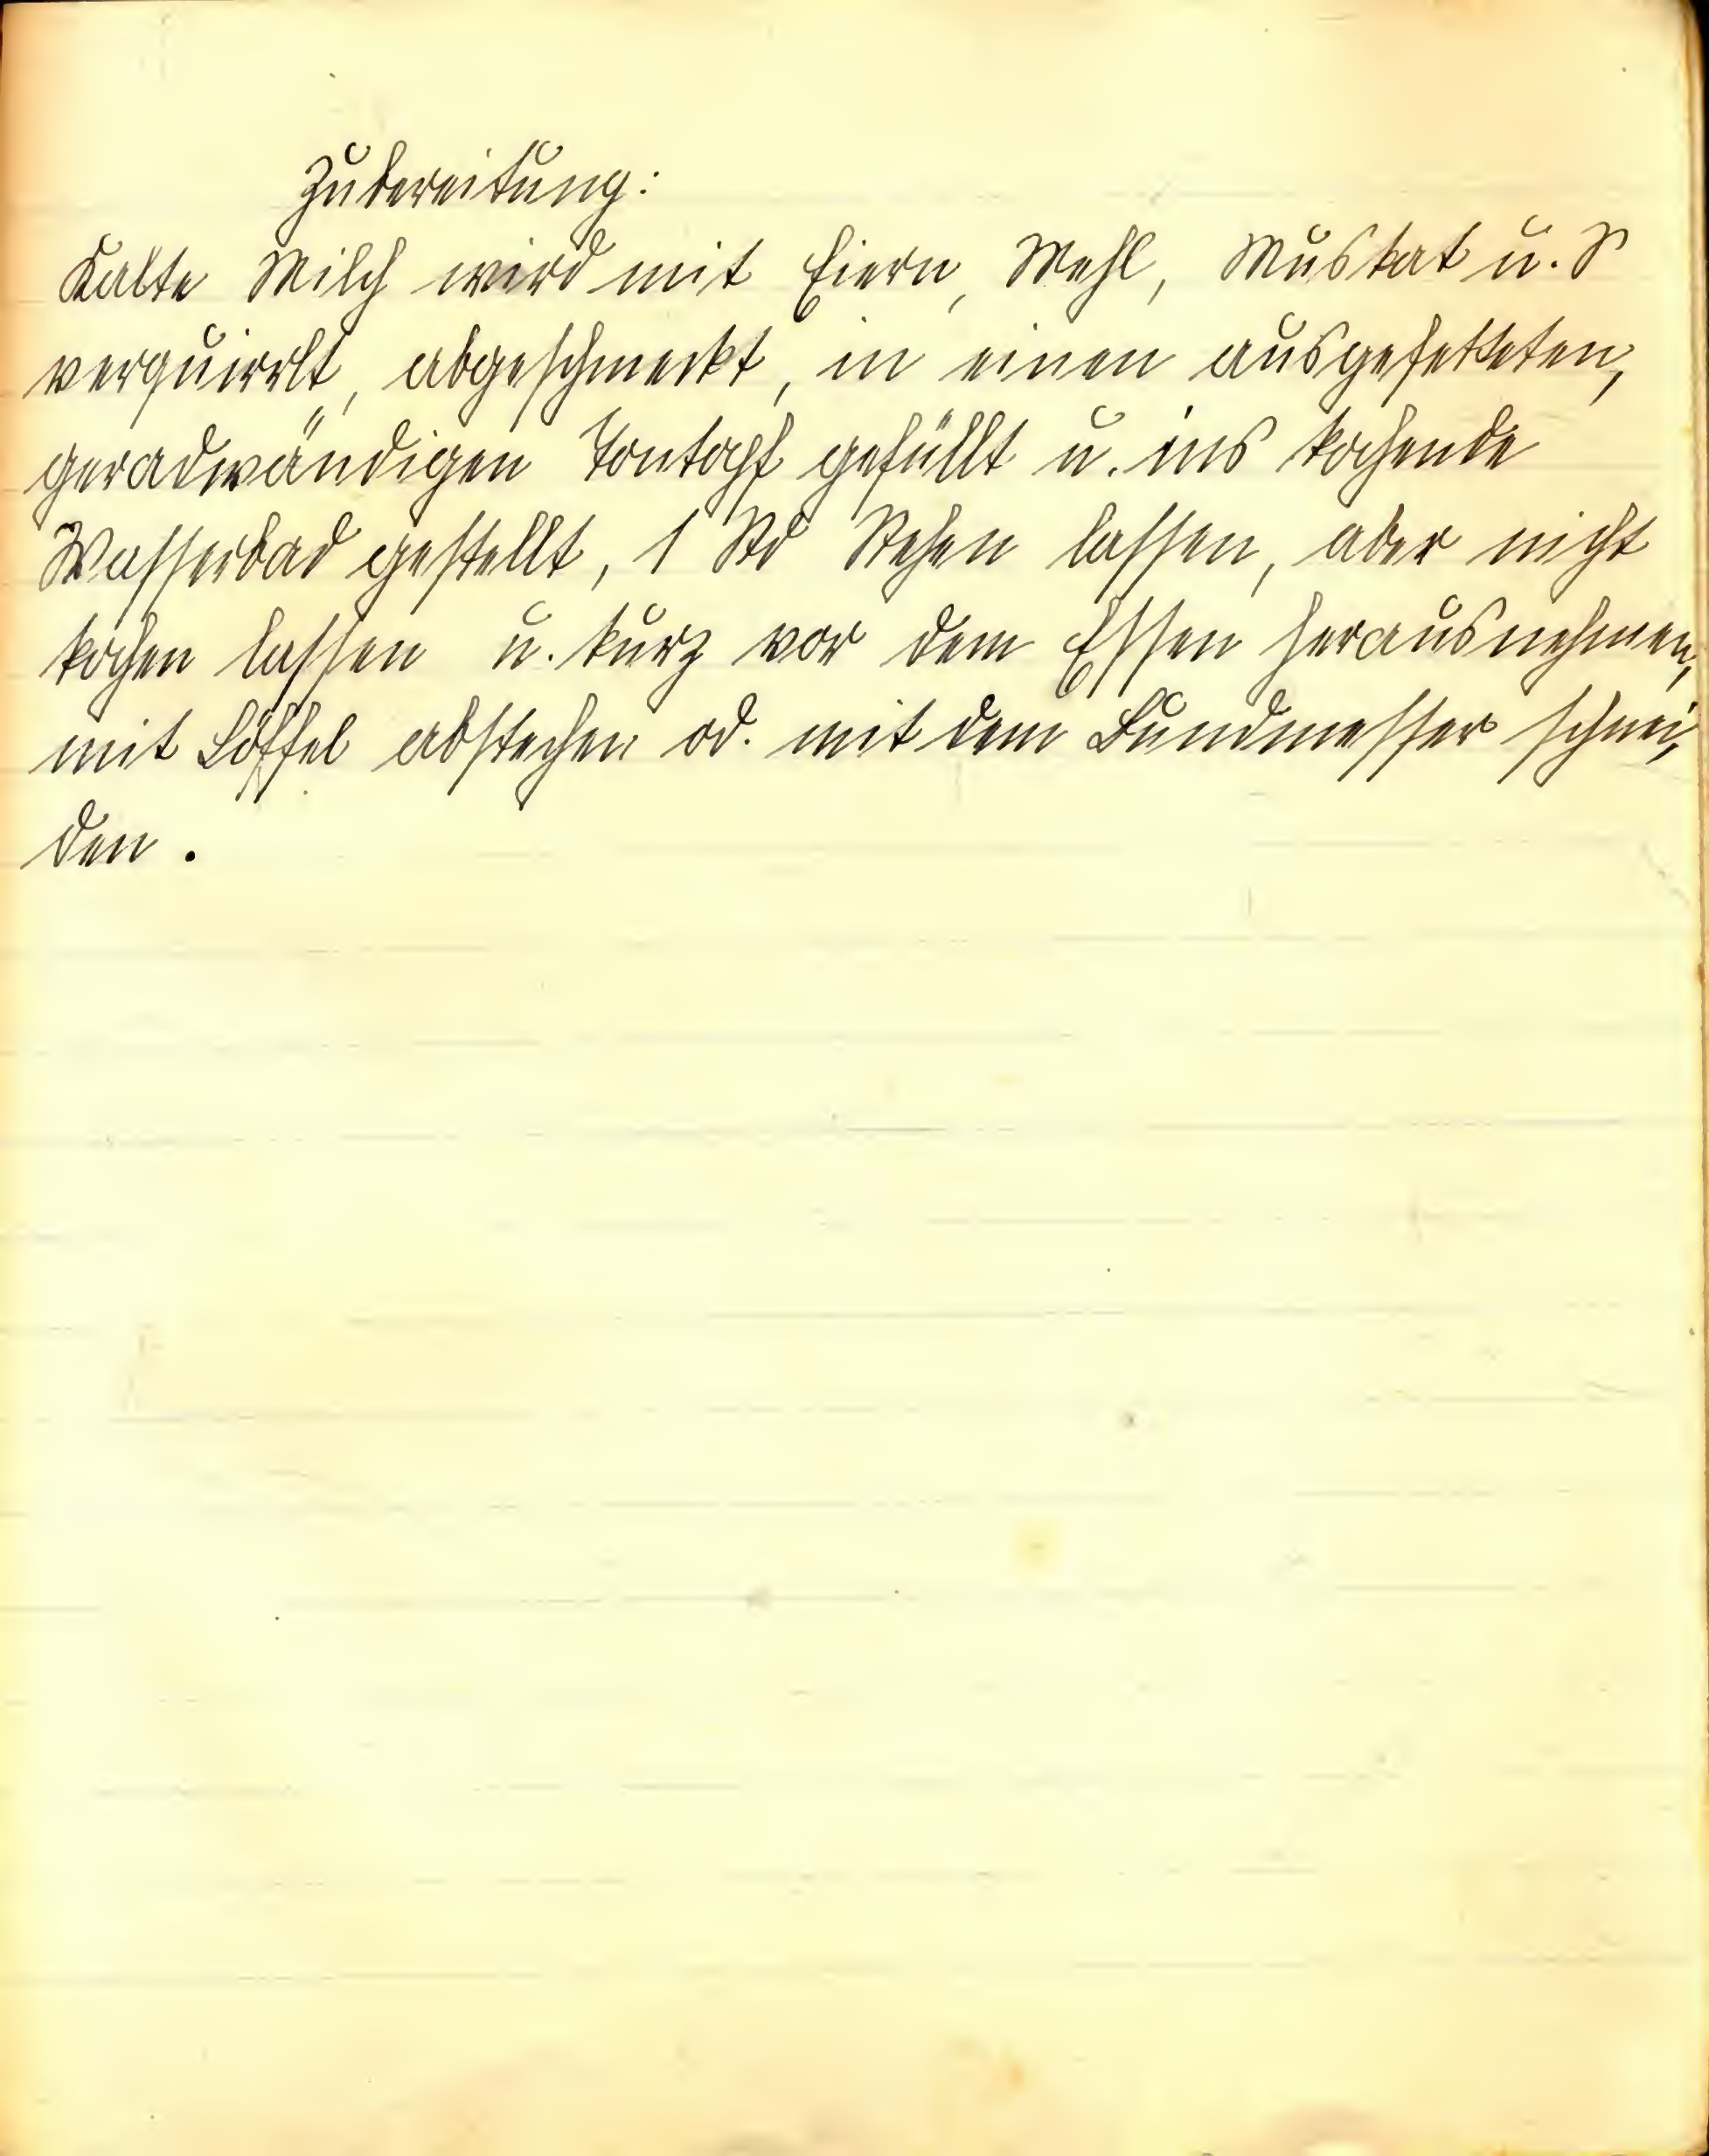 Zubereitung:
Kalte Milch wird mit Eiern, Mehl, Muskat u. S
verquirrlt, abgeschmeckt, in einen ausgefetteten,
geradwändigen Tontopf gefüllt u. ins kochende
Wasserbad gestellt, 1 Std Stehen lassen, aber nicht
kochen lassen u. kurz vor dem Essen herausnehmen,
mit Löffel abstechen od. mit dem Bundmesser schnei,
den.